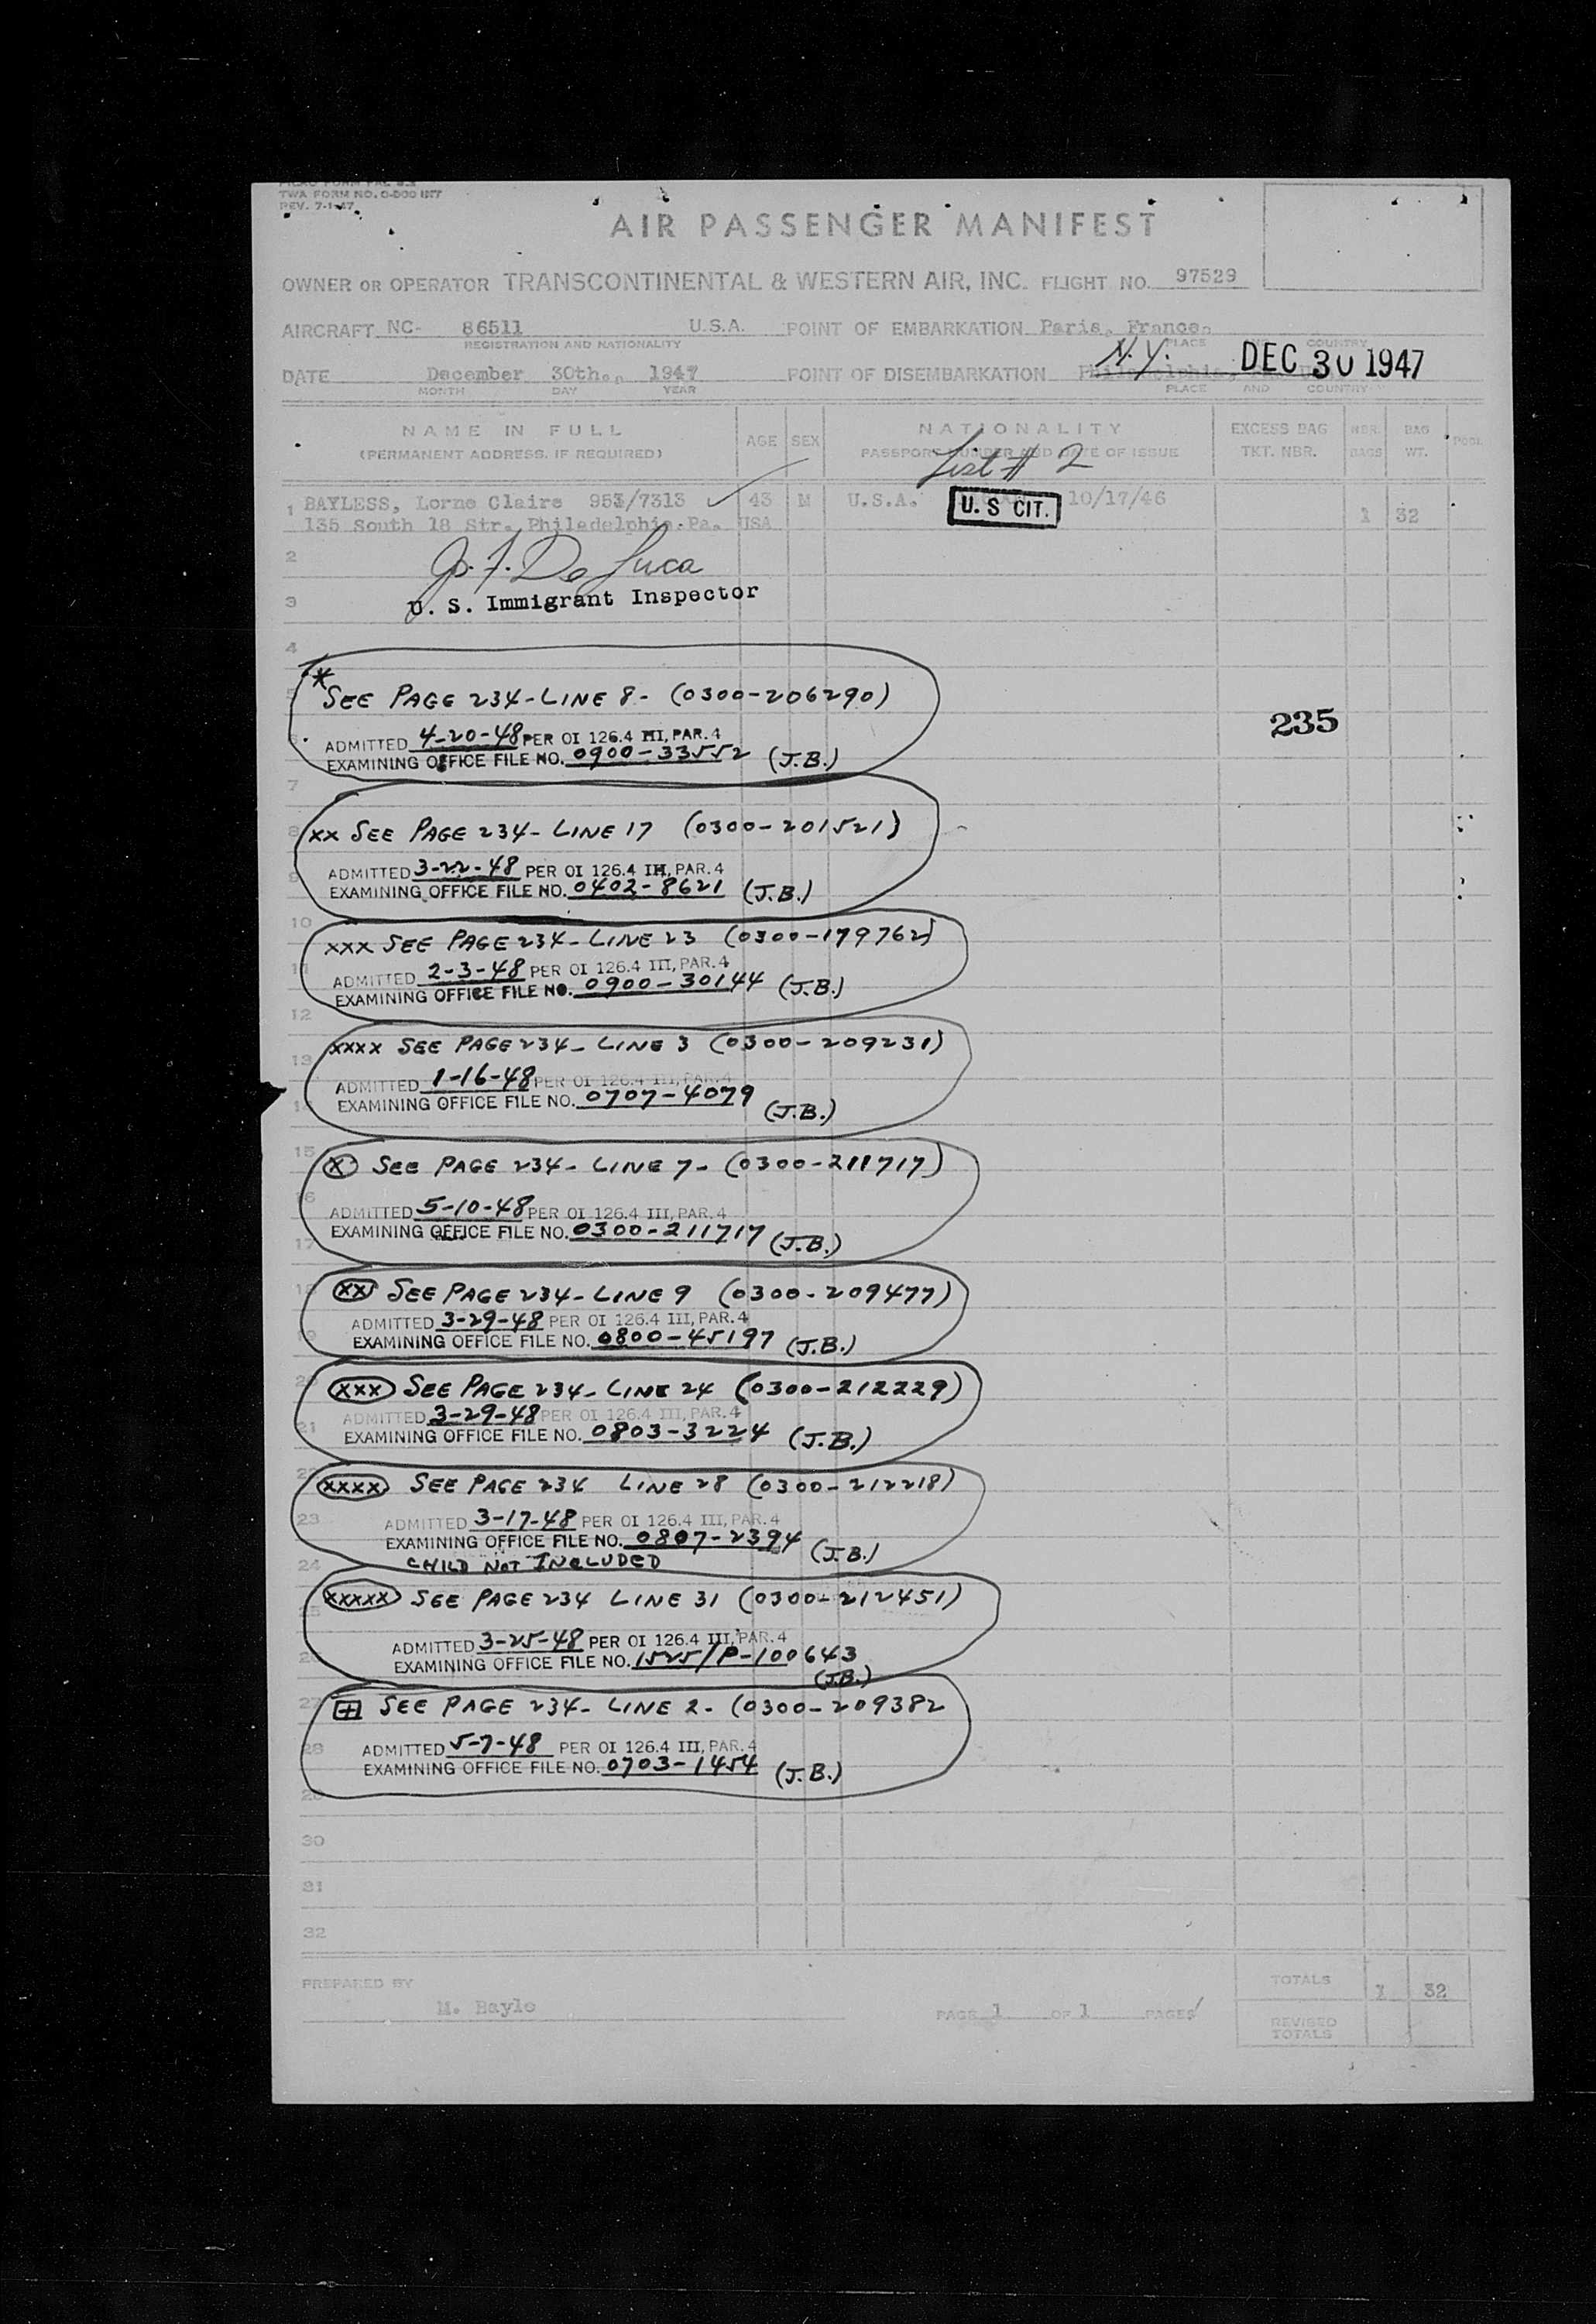 TWA FORM NO. O-500 INT
REV. 7-1-47
AIR PASSENGER MANIFEST
OWNER OR OPERATOR TRANSCONTINENTAL & WESTERN AIR, INC. FLIGHT NO. 97529
AIRCRAFT NC- 86511 U.S.A. POINT OF EMBARKATION Paris, France.
REGISTRATION AND NATIONALITY PLACE COUNTRY
N.Y. DEC 30 1947
DATE December 30th., 1947 POINT OF DISEMBARKATION Philadelphia,
MONTH DAY YEAR PLACE AND COUNTRY
NAME IN FULL AGE SEX NATIONALITY EXCESS BAG NBR. BAG
(PERMANENT ADDRESS, IF REQUIRED) PASSPORT NUMBER AND DATE OF ISSUE TKT. NBR. BAGS WT.
List # 2
1 BAYLESS, Lorne Claire 953/7313 43 M U.S.A. 10/17/46
U. S CIT.
135 South 18 Str. Philadelphia Pa. USA 1 32
2
3
U. S. Immigrant Inspector
4
* SEE PAGE 234-LINE 8- (0300-206290)
235
ADMITTED 4-20-48 PER OI 126.4 III, PAR. 4
EXAMINING OFFICE FILE NO. 0900-33552 (J.B.)
7
8 XX SEE PAGE 234- LINE 17 (0300-201521)
ADMITTED 3-22-48 PER OI 126.4 III, PAR. 4
9 EXAMINING OFFICE FILE NO. 0402-8621 (J.B.)
10
XXX SEE PAGE 234- LINE 23 (0300-179762)
11 ADMITTED 2-3-48 PER OI 126.4 III, PAR. 4
EXAMINING OFFICE FILE NO. 0900-30144 (J.B.)
12
13 XXXX SEE PAGE 234- LINE 3 (0300-209231)
ADMITTED 1-16-48 PER OI 126.4 III, PAR. 4
14 EXAMINING OFFICE FILE NO. 0707-4079 (J.B.)
15 X SEE PAGE 234- LINE 7- (0300-211717)
16 ADMITTED 5-10-48 PER OI 126.4 III, PAR. 4
17 EXAMINING OFFICE FILE NO. 0300-211717 (J.B.)
18 XX SEE PAGE 234- LINE 9 (0300-209477)
ADMITTED 3-29-48 PER OI 126.4 III, PAR. 4
19 EXAMINING OFFICE FILE NO. 0800-45197 (J.B.)
20 XXX SEE PAGE 234- LINE 24 (0300-212229)
21 ADMITTED 3-29-48 PER OI 126.4 III, PAR. 4
EXAMINING OFFICE FILE NO. 0803-3224 (J.B.)
22 XXXX SEE PAGE 234 LINE 28 (0300-212218)
23 ADMITTED 3-17-48 PER OI 126.4 III, PAR. 4
EXAMINING OFFICE FILE NO. 0807-2394 (J.B.)
24 CHILD NOT INCLUDED
25 XXXXX SEE PAGE 234 LINE 31 (0300-212451)
ADMITTED 3-25-48 PER OI 126.4 III, PAR. 4
26 EXAMINING OFFICE FILE NO. 1525/P-100643
(J.B.)
27 + SEE PAGE 234- LINE 2- (0300-209382
28 ADMITTED 5-7-48 PER OI 126.4 III, PAR. 4
EXAMINING OFFICE FILE NO. 0703-1454 (J.B.)
29
30
31
32
PREPARED BY TOTALS 1 32
M. Bayle PAGE 1 OF 1 PAGES
REVISED
TOTALS